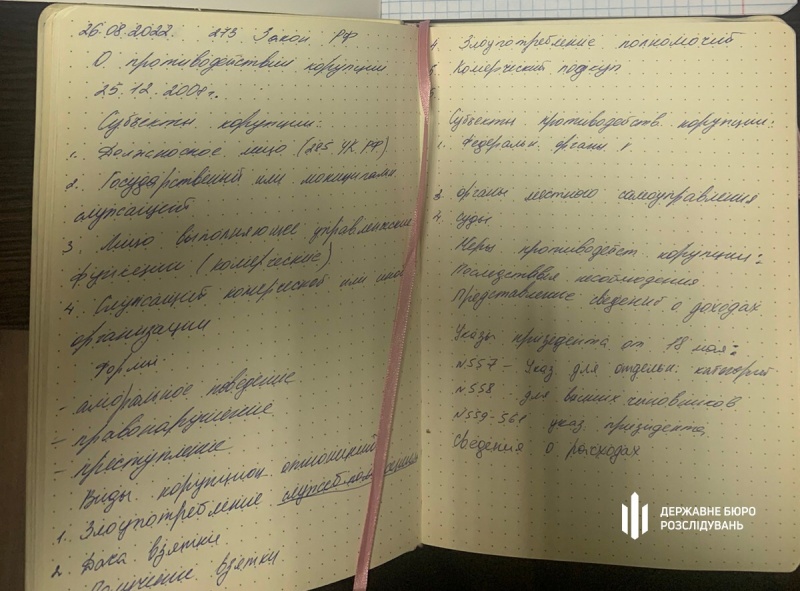 26.08.2022. 273 Закон РФ
О противодействии корупции
25.12.2008г.
Субъекты корупции:
1. Должносное лицо (285 УК РФ)
2. Государственный или
служащей
3. Лицо выполняющее
функции (комерческие)
4. Служащий комерческой или иной
организации
Формы:
- аморальное поведение
- правонарушение
- преступление
Виды корупцион. отношений
1. Злоупотребление служеб.
2. Дача взятки
Получение взятки
4 Злоупотребление полномочий
5 Комерческий подкуп
Субъекты противодейств. корупции:
1. Федеральн. органы
3 органы местного самоуправления
4. суды
Меры противодейст. корупции:
несоблюдения
Представление сведений о доходах
Указы президента от 18 мая:
№557 - Указ для отдельн. категорий
№558 для высших чиновников
№559-561 указ президента,
Сведения о расходах
ДЕРЖАВНЕ БЮРО
РОЗСЛІДУВАНЬ